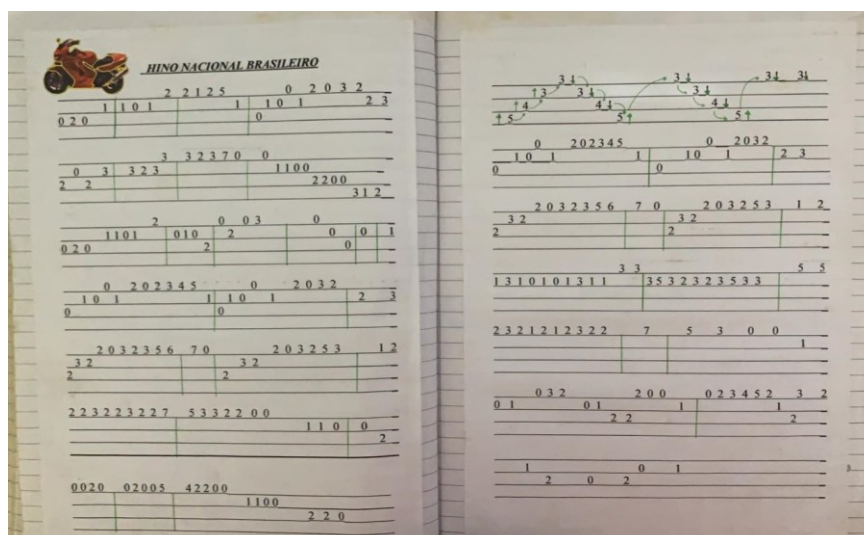 HINO NACIONAL BRASILEIRO
2 2 1 2 5 0 2 0 3 2
1 1 0 1 1 1 0 1 2 3
0 2 0 0
3 3 2 3 7 0 0
0 3 3 2 3 1 1 0 0
2 2 2 2 0 0
3 1 2
2 0 0 3 0
1 1 0 1 0 1 0 2 0 0 1
0 2 0 2 0
0 2 0 2 3 4 5 0 2 0 3 2
1 0 1 1 1 0 1 2 3
0 0
2 0 3 2 3 5 6 7 0 2 0 3 2 5 3 1 2
3 2 3 2
2 2
2 2 3 2 2 3 2 2 7 5 3 3 2 2 0 0
1 1 0 0
2
0 0 2 0 0 2 0 0 5 4 2 2 0 0
1 1 0 0
2 2 0
3↓ 3↓ 3↓ 3↓
↑3 3↓ 3↓
↑4 4↓ 4↓
↑5 5↑ 5↑
0 2 0 2 3 4 5 0 2 0 3 2
1 0 1 1 1 0 1 2 3
0 0
2 0 3 2 3 5 6 7 0 2 0 3 2 5 3 1 2
3 2 3 2
2 2
3 3 5 5
1 3 1 0 1 0 1 3 1 1 3 5 3 2 3 2 3 5 3 3
2 3 2 1 2 1 2 3 2 2 7 5 3 0 0
1
0 3 2 2 0 0 0 2 3 4 5 2 3 2
0 1 0 1 1 1
2 2 2
1 0 1
2 0 2